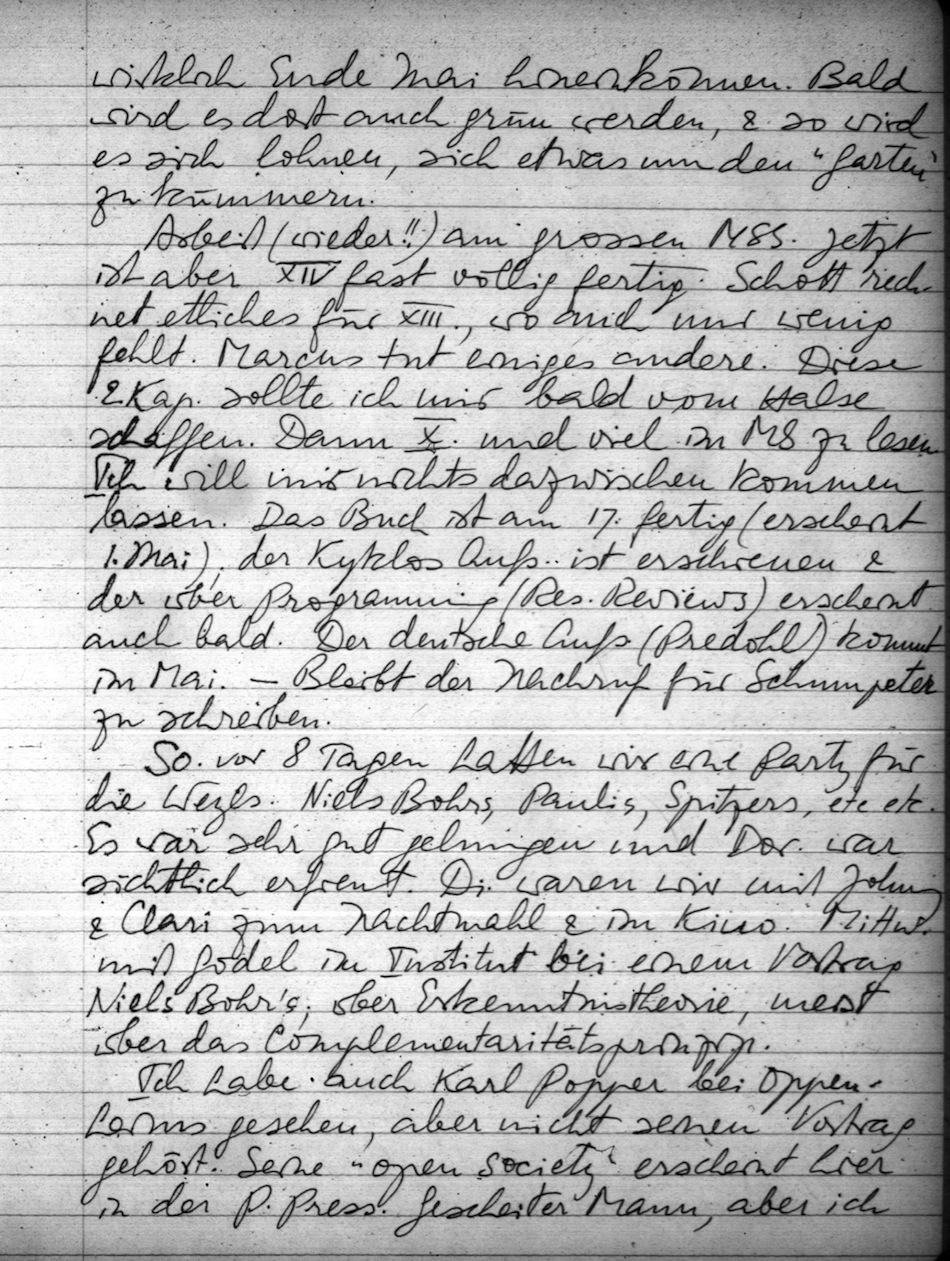 wirklich Ende Mai hineinkönnen. Bald
wird es dort auch grün werden, & so wird
es sich lohnen, sich etwas um den "Garten"
zu kümmern.
Arbeit (wieder!!) am grossen MSS. Jetzt
ist aber XIV fast völlig fertig. Schott rech-
net etliches für XIII., wo auch nur wenig
fehlt. Marcus tut einiges andere. Diese
2 Kap. sollte ich mir bald vom Halse
schaffen. Dann X. und viel im MS zu lesen.
Ich will mir nichts dazwischen kommen
lassen. Das Buch ist am 17. fertig (erscheint
1. Mai), der Kyklos Aufs. ist erschienen &
der über Programming (Res. Reviews) erscheint
auch bald. Der deutsche Aufs (Predöhl) kommt
im Mai. — Bleibt der Nachruf für Schumpeter
zu schreiben.
So. vor 8 Tagen hatten wir eine Party für
die Weyls. Niels Bohrs, Paulis, Spitzers, etc etc.
Es war sehr gut gelungen und Dor. war
sichtlich erfreut. Di. waren wir mit Johnny
& Clari zum Nachtmahl & im Kino. Mittw.
mit Gödel im Institut bei einem Vortrag
Niels Bohr's, über Erkenntnistheorie, meist
über das Complementaritätsprinzip.
Ich habe auch Karl Popper bei Oppen-
heims gesehen, aber nicht seinen Vortrag
gehört. Seine "open society" erscheint hier
in der P. Press. Gescheiter Mann, aber ich